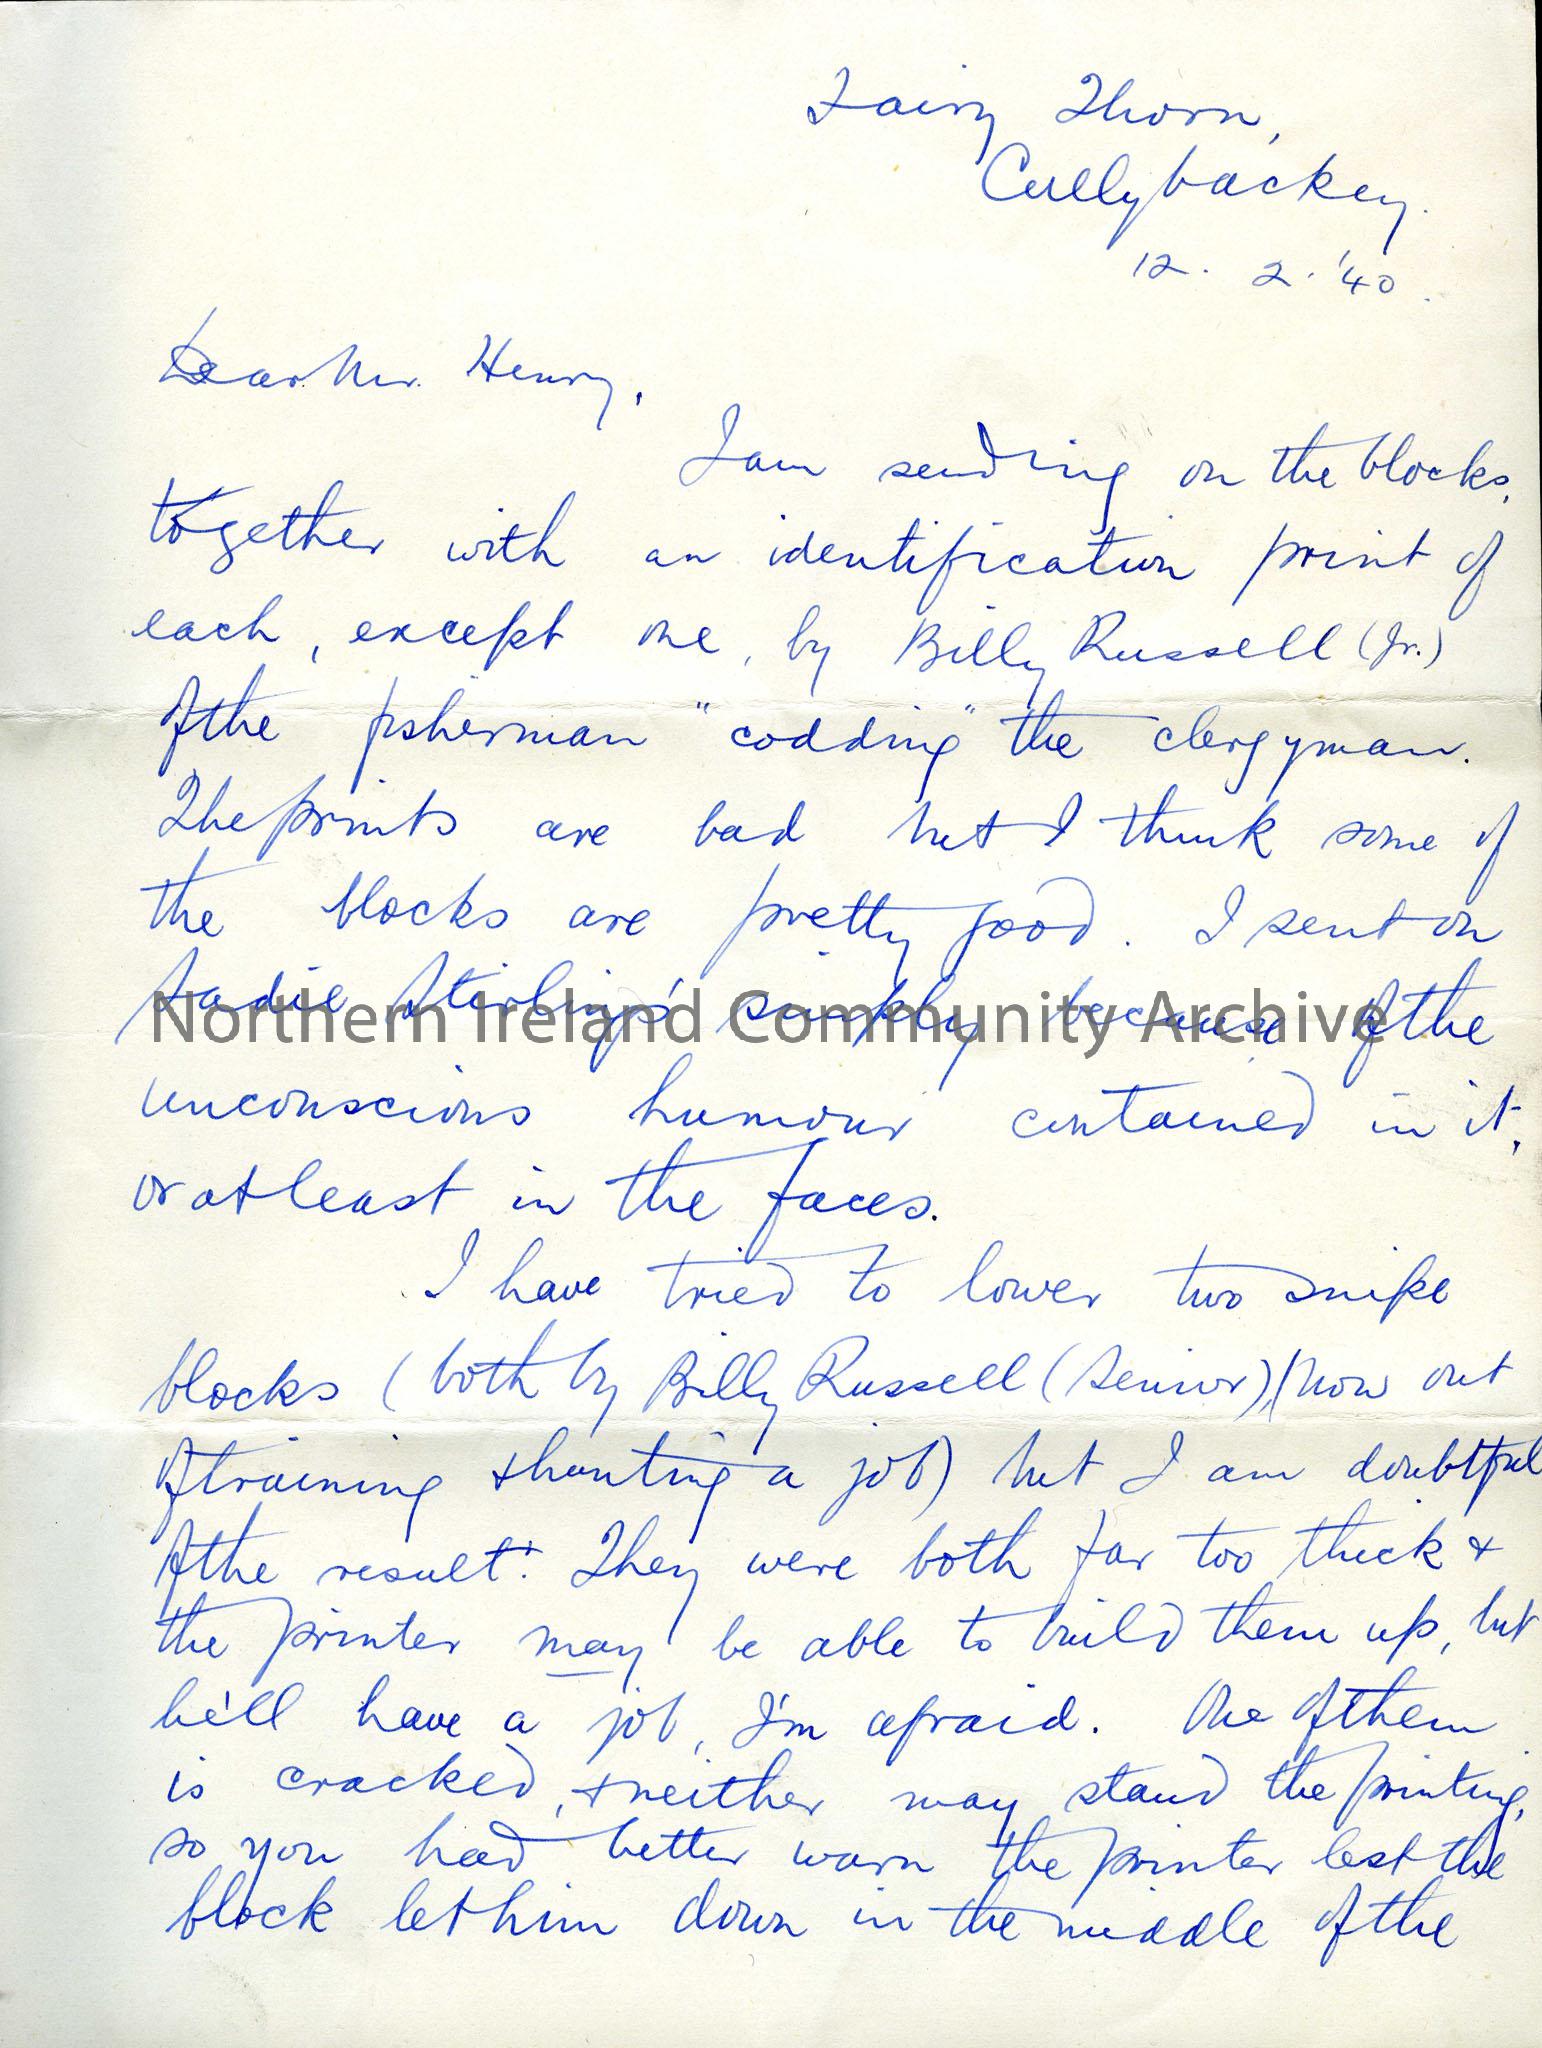 Fairy Thorn,
Cullybackey.
12. 2. '40.
Dear Mr. Henry,
I am sending on the blocks,
together with an identification print of
each, except one, by Billy Russell (Jr.)
of the fisherman "codding" the clergyman.
The prints are bad but I think some of
the blocks are pretty good. I sent on
Sadie Stirling's simply because of the
unconscious humour contained in it,
or at least in the faces.
I have tried to lower two snipe
blocks (both by Billy Russell (Senior), (now out
of training & hunting a job) but I am doubtful
of the result. They were both far too thick &
the printer may be able to build them up, but
he'll have a job, I'm afraid. One of them
is cracked, & neither may stand the printing,
so you had better warn the printer lest the
block let him down in the middle of the
Northern Ireland Community Archive